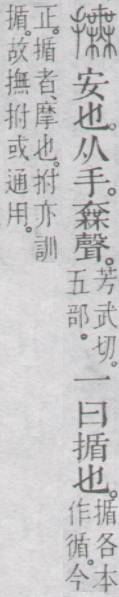 撫安也。从手。䍢聲。芳武切。五部。一曰揗也。揗各本作循。今
正。揗者、摩也。拊亦訓揗。故撫拊或通用。